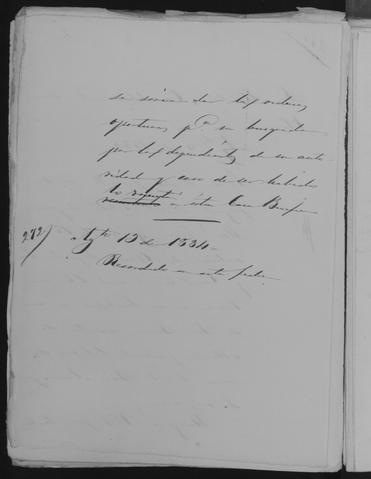 se sirva dar las ordenes
oportunas pª su busqueda
por los dependientes de su auto
ridad y caso de ser habido
lo remita a esta Casa
Agto 13 de 1834
Recordado en esta fecha